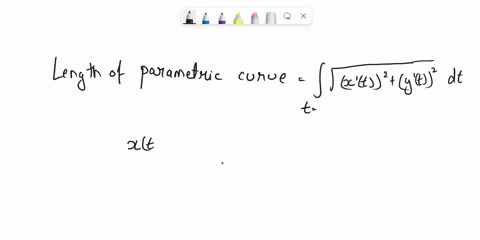 Length of parametric curve = ∫ √((x'(t))² + (y'(t))²) dt
t=
x(t